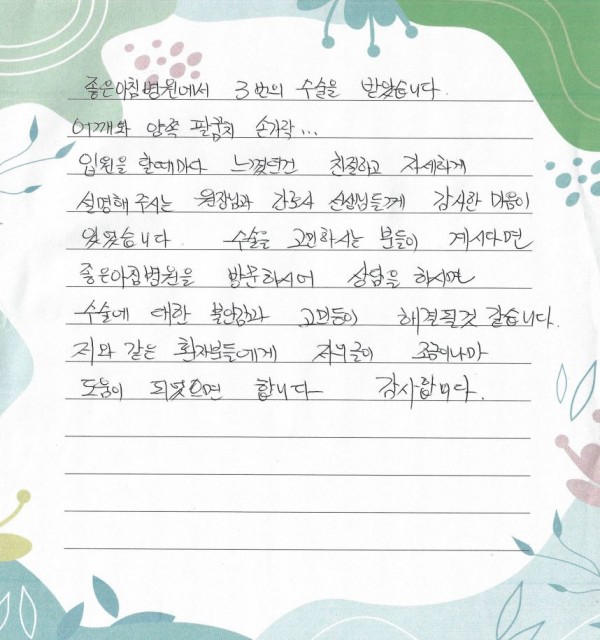 좋은아침병원에서 3번의 수술을 받았습니다.
어깨와 양쪽 팔꿈치 손가락...
입원을 할때마다 느꼈던건 친절하고 자세하게
설명해 주시는 원장님과 간호사 선생님들께 감사한 마음이
있었습니다. 수술을 고민하시는 분들이 계시다면
좋은아침병원을 방문하시어 상담을 하시면
수술에 대한 불안감과 고민등이 해결될것 같습니다.
저와 같은 환자분들에게 저의글이 조금이나마
도움이 되었으면 합니다 감사합니다.